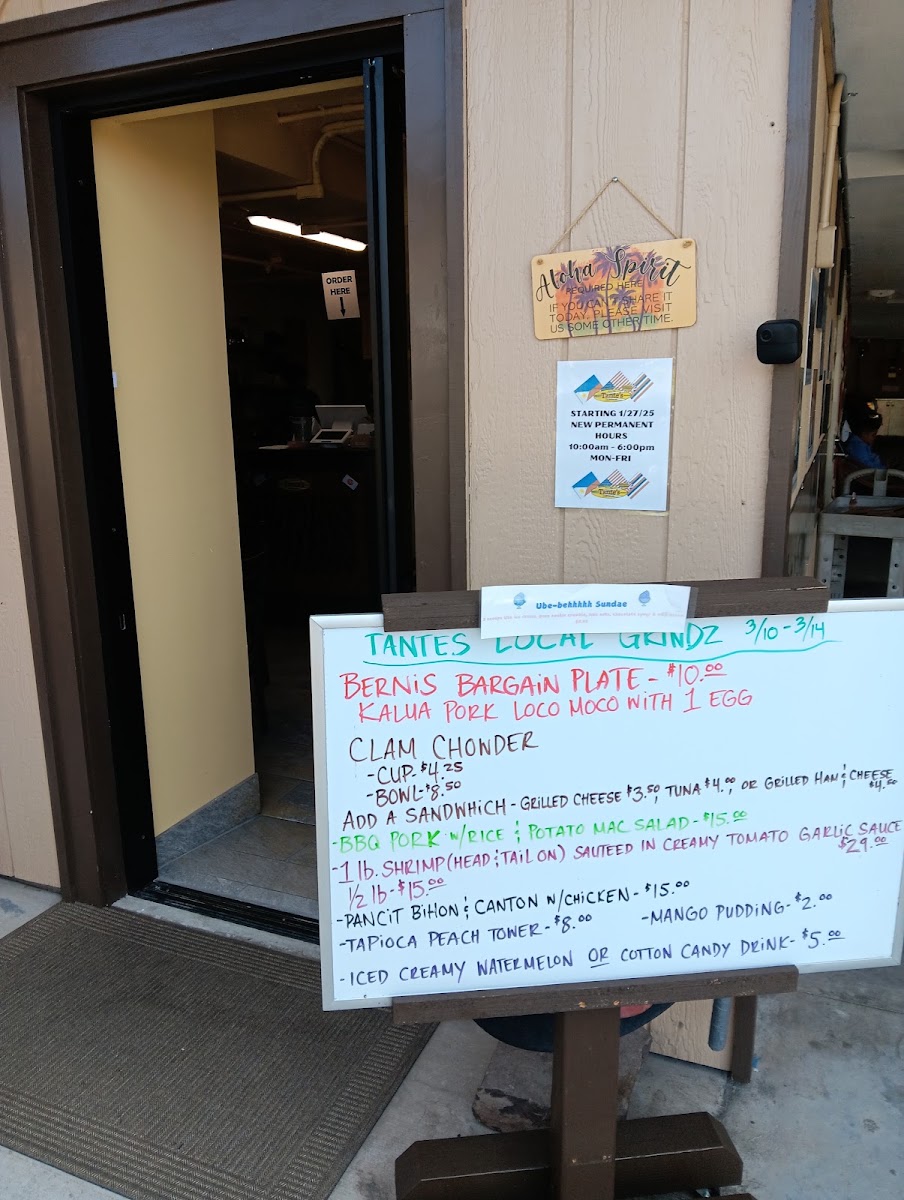 ORDER
HERE
Aloha Spirit
REQUIRED HERE
IF YOU CAN'T SHARE IT
TODAY, PLEASE VISIT
US SOME OTHER TIME.
Tante's
STARTING 1/27/25
NEW PERMANENT
HOURS
10:00am - 6:00pm
MON-FRI
Tante's
Ube-behhhhh Sundae
TANTES LOCAL GRINDZ 3/10-3/14
BERNIS BARGAIN PLATE - $10.00
KALUA PORK LOCO MOCO WITH 1 EGG
CLAM CHONDER
-CUP-$4.25
-BOWL-$8.50
ADD A SANDWHICH - GRILLED CHEESE $3.50, TUNA $4.00, OR GRILLED HAM & CHEESE $4.00
-BBQ PORK W/RICE & POTATO MAC SALAD - $15.00
-1 lb. SHRIMP (HEAD & TAIL ON) SAUTEED IN CREAMY TOMATO GARLIC SAUCE $29.00
1/2 lb - $15.00
-PANCIT BIHON & CANTON W/CHICKEN - $15.00
-TAPIOCA PEACH TOWER - $8.00 -MANGO PUDDING - $2.00
-ICED CREAMY WATERMELON OR COTTON CANDY DRINK - $5.00